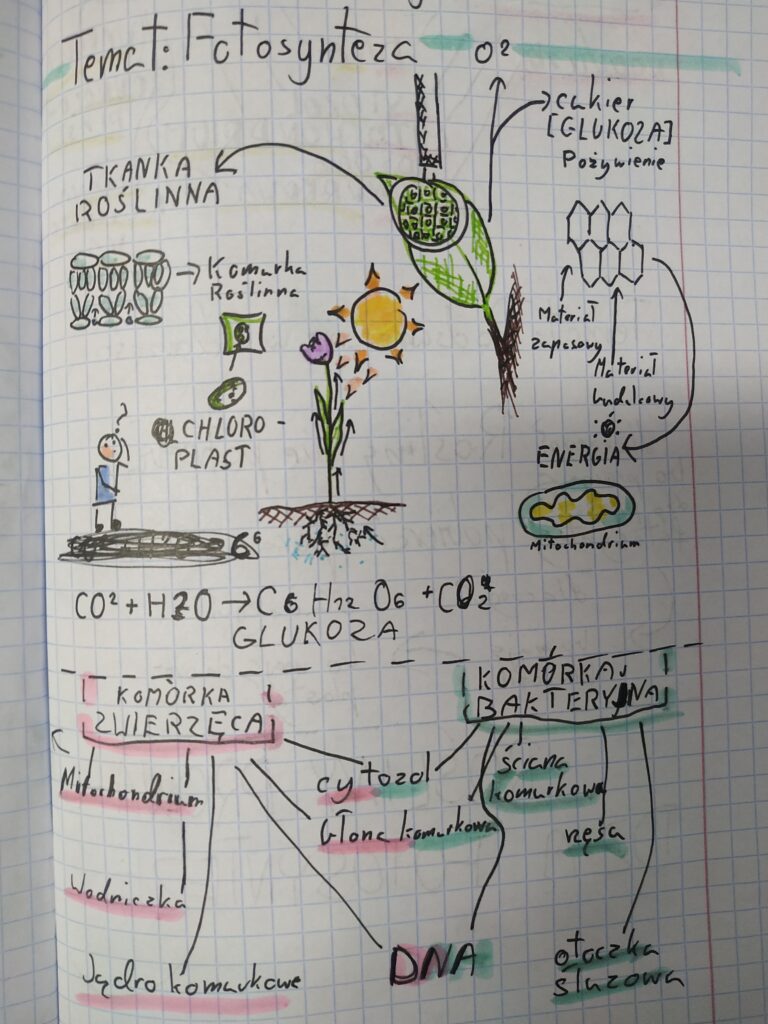 Temat: Fotosynteza
O²
cukier
[GLUKOZA]
Pożywienie
TKANKA
ROŚLINNA
Komurka
Roślinna
Materiał
zapasowy
Materiał
budulcowy
CHLORO-
PLAST
?
ENERGIA
Mitochondrium
6⁶
CO² + H2O → C6 H12 O6 + CO2
GLUKOZA
KOMÓRKA
ZWIERZĘCA
KOMÓRKA
BAKTERYJNA
Mitochondrium
cytozol
ściana
komurkowa
błona komurkowa
rzęsa
Wodniczka
DNA
otoczka
śluzowa
Jądro komurkowe